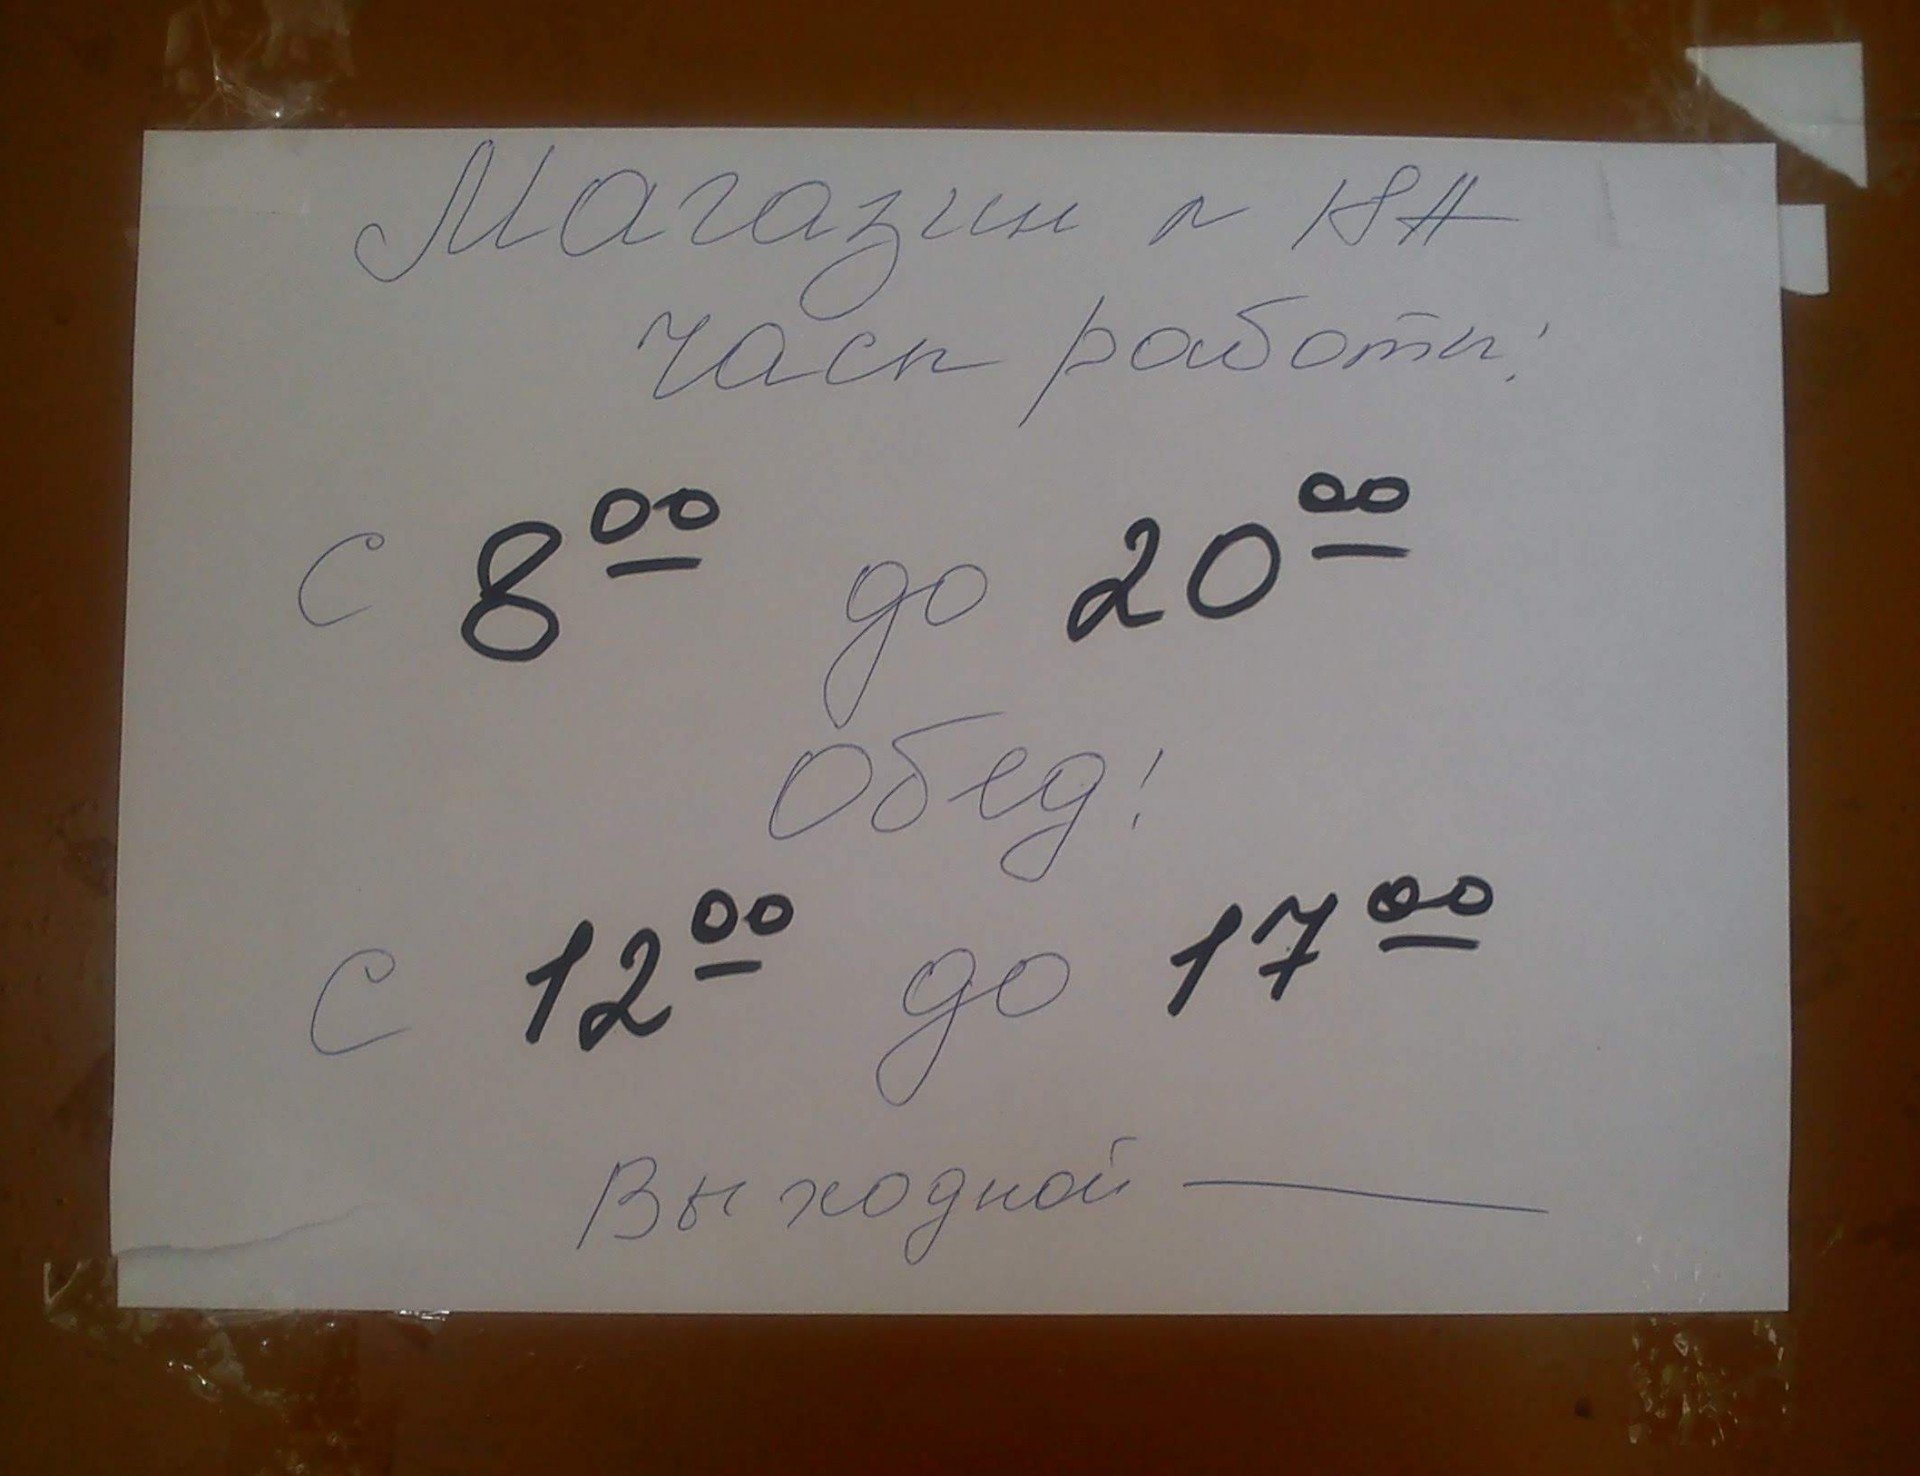 Магазин
часы работы:
С 8⁰⁰ до 20⁰⁰
Обед!
С 12⁰⁰ до 17⁰⁰
Выходной —